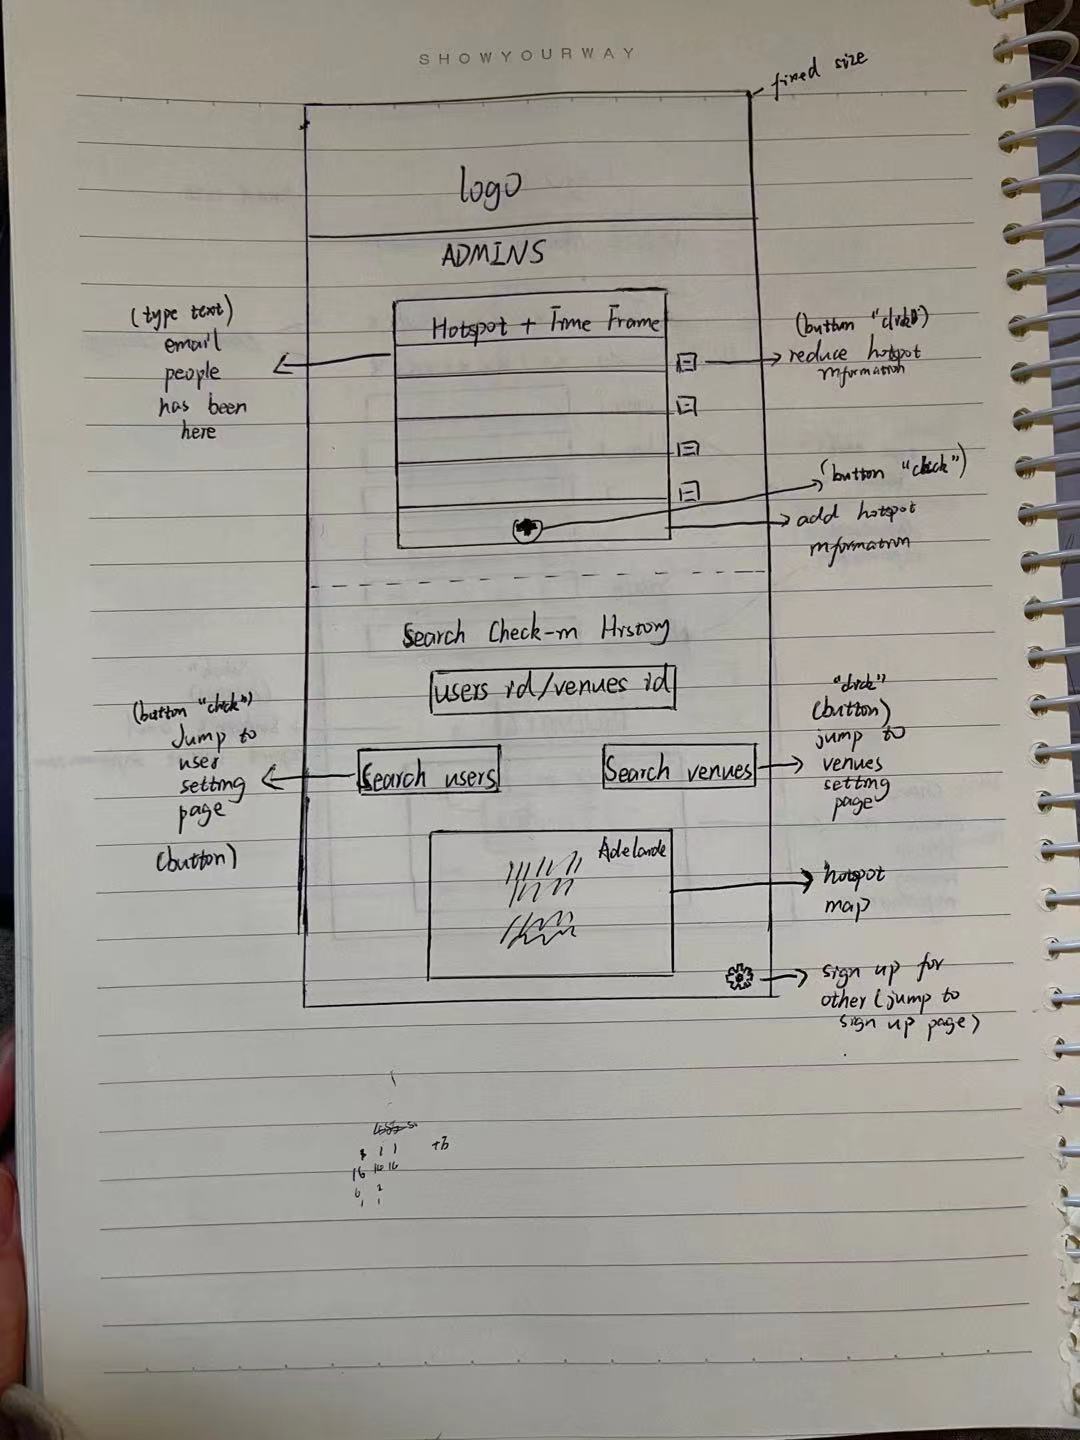 SHOWYOURWAY
fixed size
logo
ADMINS
Hotspot + Time Frame
(type text)
email
people
has been
here
(button "click")
reduce hotspot
information
(button "click")
add hotspot
information
Search Check-in History
users id/venues id
(button "click")
Jump to
user
setting
page
(button)
Search users
Search venues
"click"
(button)
jump to
venues
setting
page
Adelaide
hotspot
map
sign up for
other (jump to
sign up page)